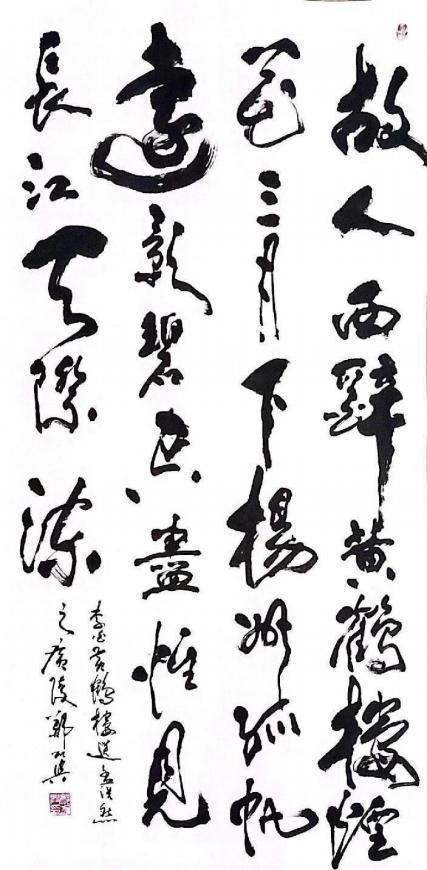 故人西辭黄鶴樓煙
花三月下楊州孤帆
遠影碧空盡惟見
長江天際流
李白黄鶴樓送孟浩然
之廣陵鄭